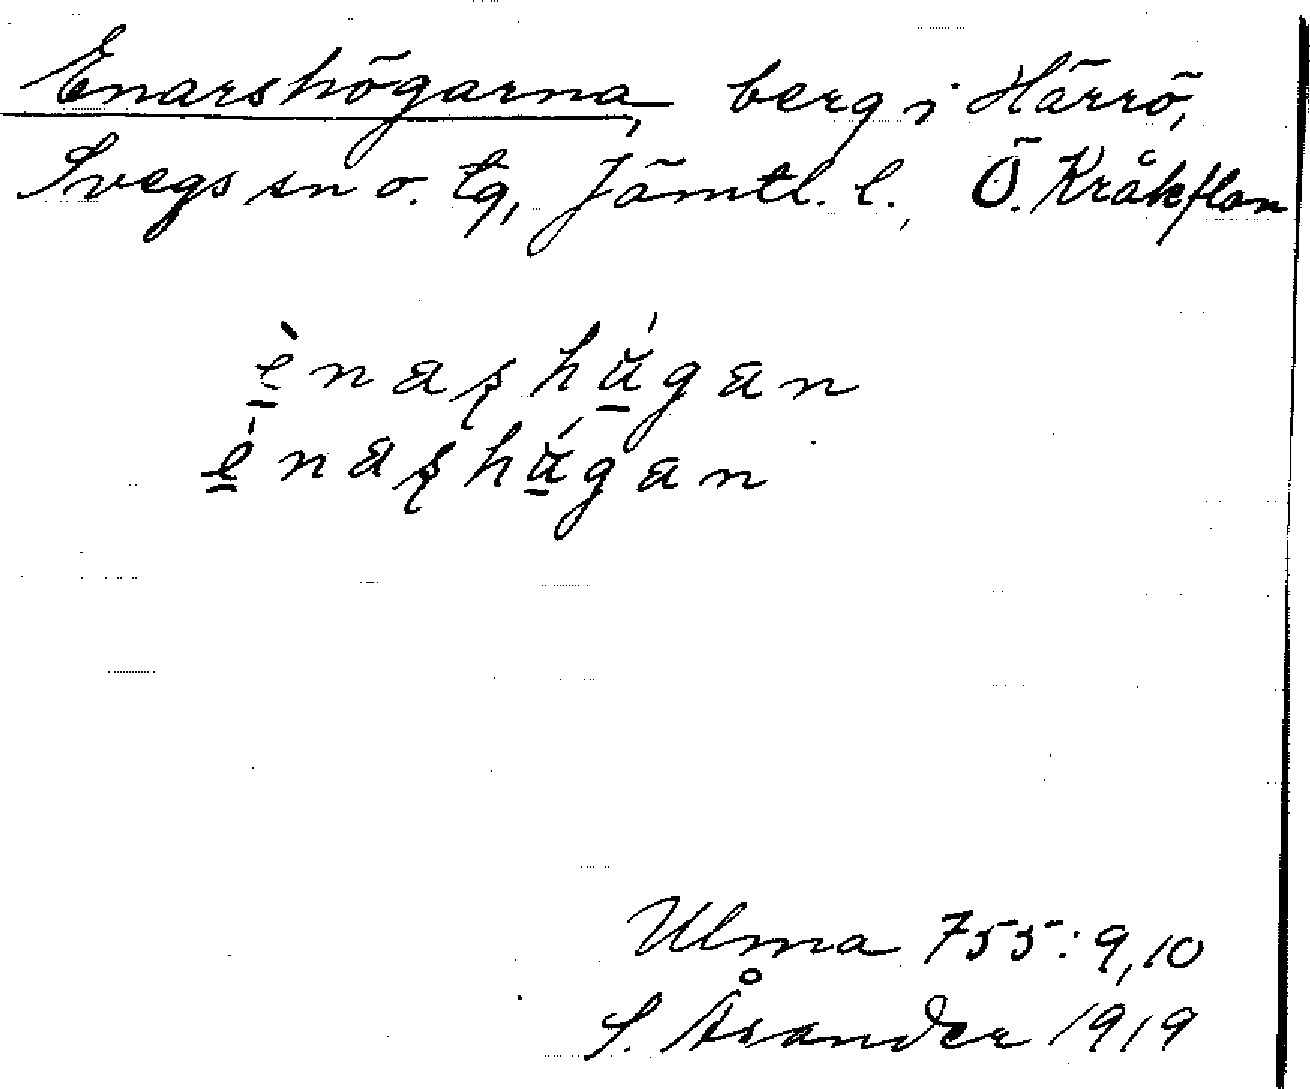 Enarshögarna, berg i Härrö,
Svegs sn o. tg, Jämtl. l., Ö. Kråkflon
ènaşhágan
énaşhágan
Ulma 755:9,10
S. Åsander 1919